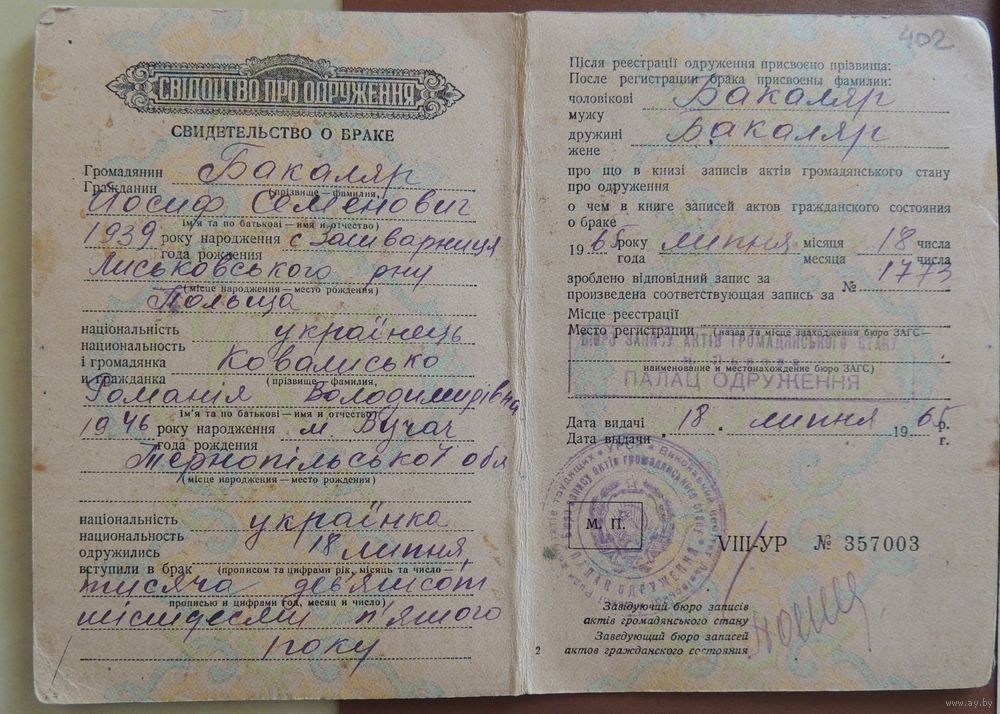 СВІДОЦТВО ПРО ОДРУЖЕННЯ
СВИДЕТЕЛЬСТВО О БРАКЕ
Громадянин Бакаляр
Гражданин (прізвище — фамилия,
Йосиф Семенович
ім'я та по батькові — имя и отчество)
1939 року народження с
года рождения
Лиськовського р-ну
(місце народження — место рождения)
Польща
національність українець
национальность
і громадянка Ковалисько
и гражданка (прізвище — фамилия,
Романія Володимирівна
ім'я та по батькові — имя и отчество)
1946 року народження м. Бучач
года рождения
Тернопільської обл
(місце народження — место рождения)
національність українка
национальность
одружились 18 липня
вступили в брак (прописом та цифрами рік, місяць та число —
тисяча дев'ятсот
прописью и цифрами год, месяц и число)
шістдесят п'ятого
року
402
Після реєстрації одруження присвоєно прізвища:
После регистрации брака присвоены фамилии:
чоловікові Бакаляр
мужу
дружині Бакаляр
жене
про що в книзі записів актів громадянського стану
про одруження
о чем в книге записей актов гражданского состояния
о браке
1965 року липня місяця 18 числа
года месяца числа
зроблено відповідний запис за № 1773
произведена соответствующая запись за
Місце реєстрації
Место регистрации (назва та місце знаходження бюро ЗАГС —
БЮРО ЗАПИСУ АКТІВ ГРОМАДЯНСЬКОГО СТАНУ
наименование и местонахождение бюро ЗАГС)
ПАЛАЦ ОДРУЖЕННЯ
Дата видачі 18 липня 1965 р.
Дата выдачи г.
М. П.
VIII-УР № 357003
Завідуючий бюро записів
актів громадянського стану
Заведующий бюро записей
актов гражданского состояния
2
www.ay.by